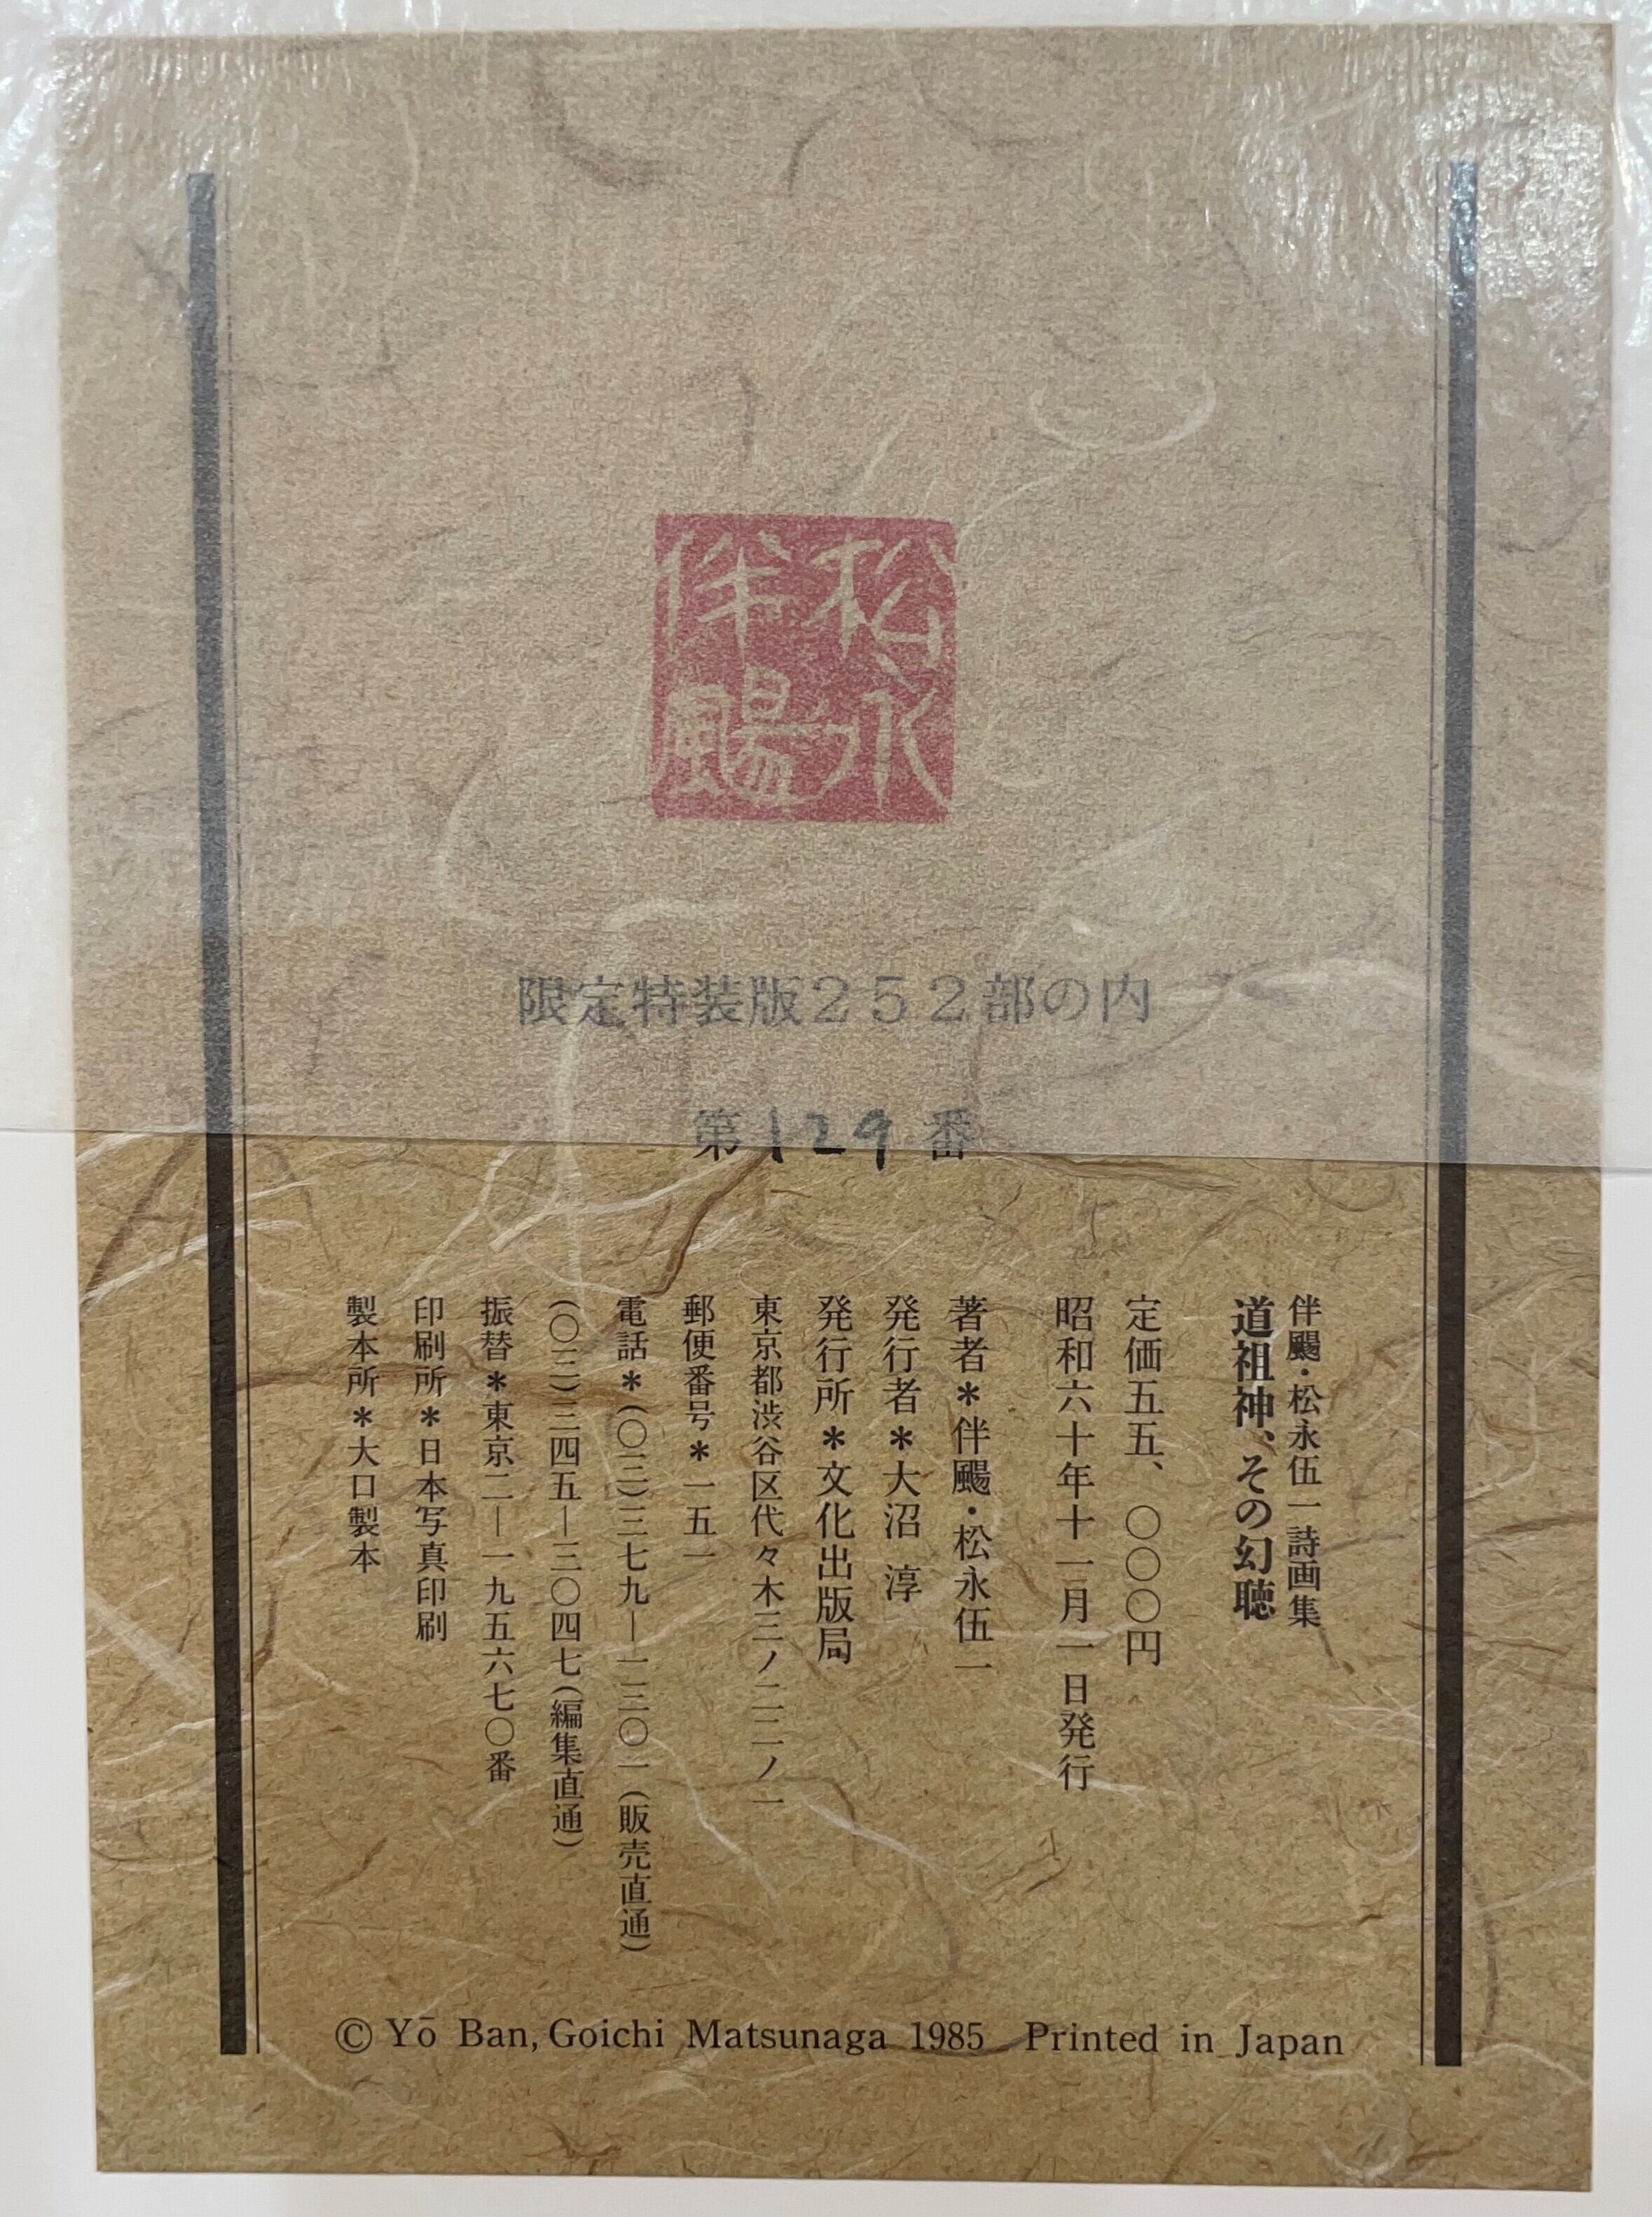 松永
伴颺
限定特装版252部の内
第129番
伴颺・松永伍一詩画集
道祖神、その幻聴
定価五五、〇〇〇円
昭和六十年十一月一日発行
著者＊伴颺・松永伍一
発行者＊大沼 淳
発行所＊文化出版局
東京都渋谷区代々木三ノ二二ノ一
郵便番号＊一五一
電話＊(〇三)三七九―一三〇一(販売直通)
(〇三)三四五―三〇四七(編集直通)
振替＊東京二―一九五六七〇番
印刷所＊日本写真印刷
製本所＊大口製本
© Yō Ban, Goichi Matsunaga 1985 Printed in Japan